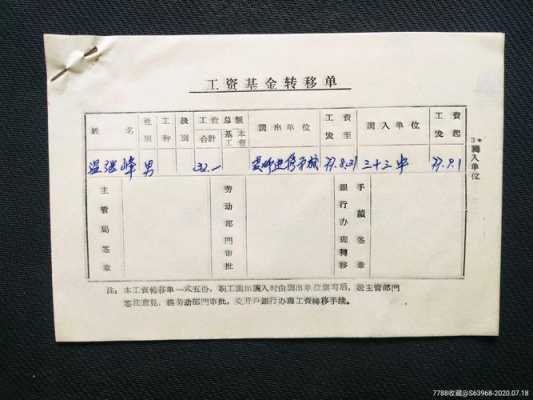 工资基金转移单
姓名 性别 工种 级别 工资合计 总额 基本工资 调出单位 工资发至 调入单位 工资发起
温 峰 男 32.— 进修 77.8.31 三十三中 77.9.1
主管局签章 劳动部门审批 银行办理转移手续签章
3*调入单位
注：本工资转移单一式五份，职工调出调入时由调出单位填写后，送主管部门
签注意见，经劳动部门审批，交开户银行办理工资转移手续。
7788收藏@S63968-2020.07.18